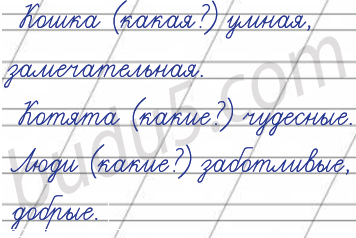 Кошка (какая?) умная,
замечательная.
Котята (какие?) чудесные.
Люди (какие?) заботливые,
добрые.
budu5.com